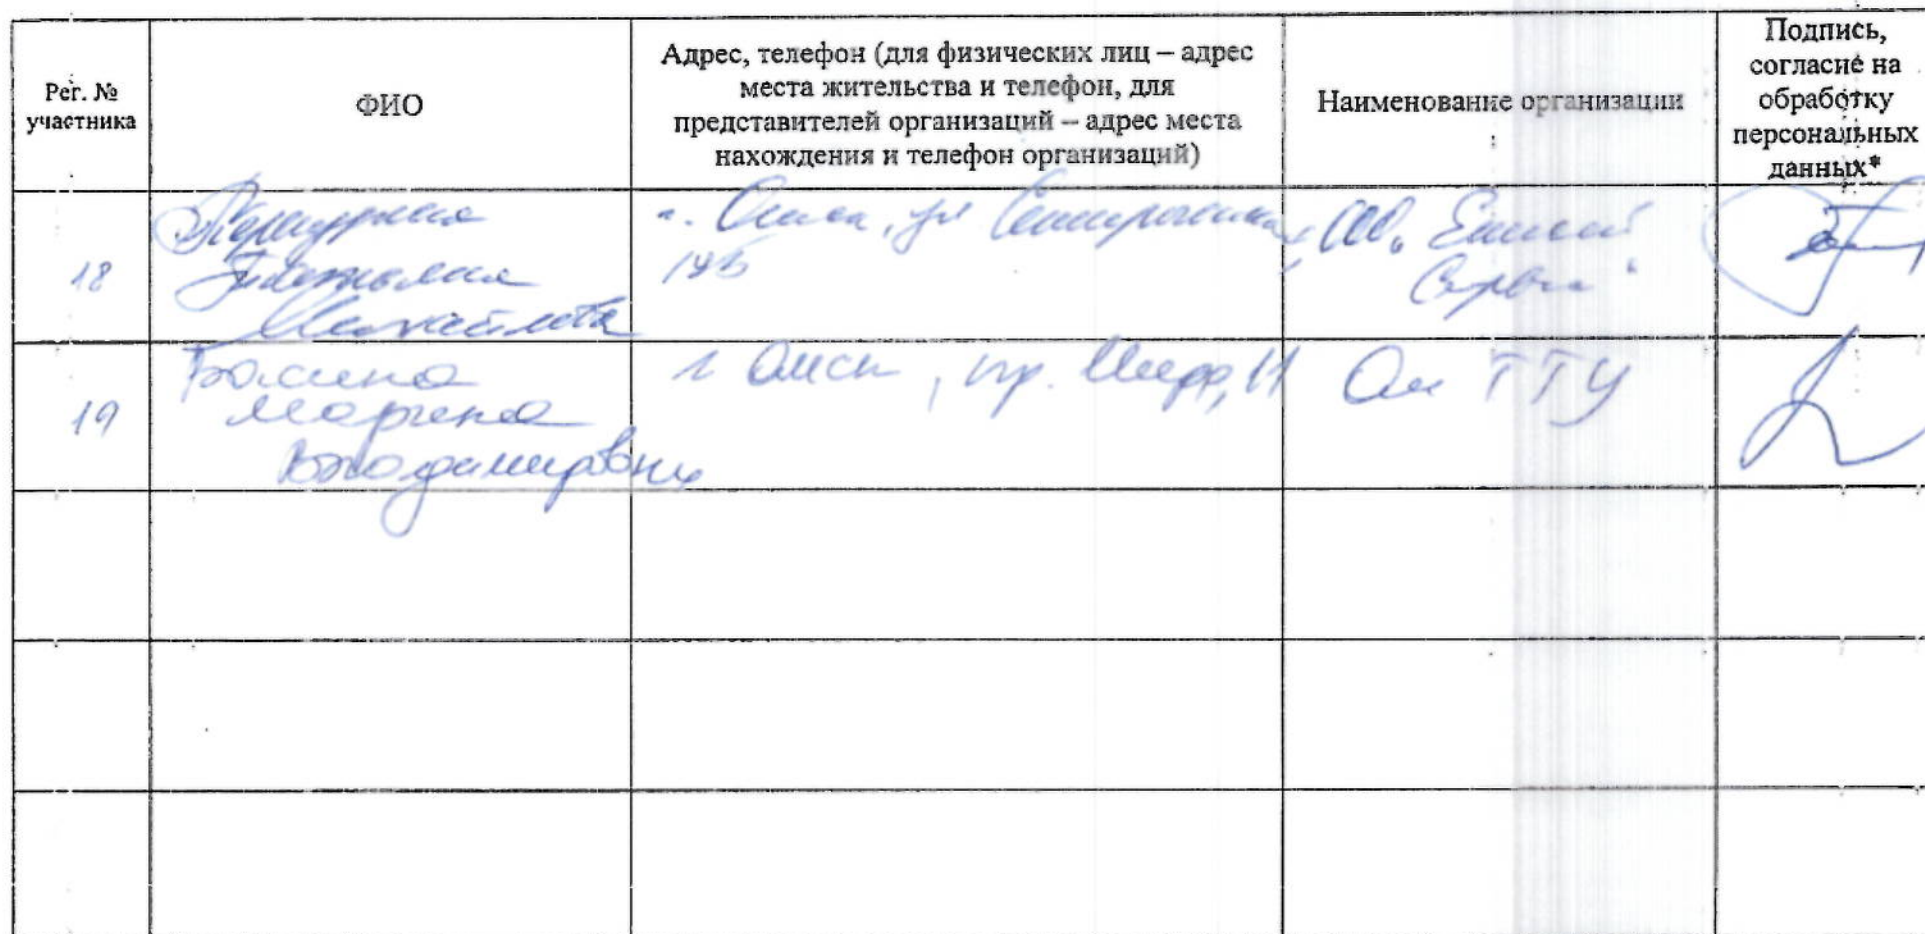 Рег. №
участника
ФИО
Адрес, телефон (для физических лиц – адрес
места жительства и телефон, для
представителей организаций – адрес места
нахождения и телефон организаций)
Наименование организации
Подпись,
согласие на
обработку
персональных
данных*
18
Татьяна
Михайловна
г. Омск, ул
19
Марина
Владимировна
г Омск, пр. Мира, 11
Ом ГТУ